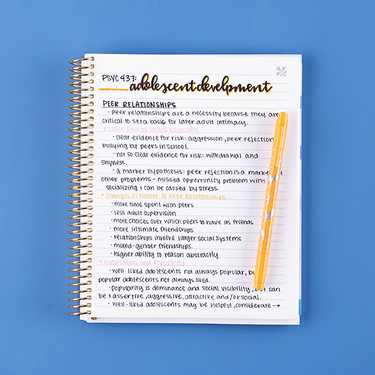 PSYC 437: adolescent develpment
PEER RELATIONSHIPS
· Peer relationships are a necessity because they are
critical to set a basis for later adult intimacy.
· clear evidence for risk: aggression, peer rejection,
bullying by peers in school.
· not so clear evidence for risk: withdrawal and
shyness.
· a marker hypothesis: peer rejection is a marker
other problems - missed opportunity problem with
socializing & can be caused by stress.
Changes in Nature to Peer Relationships
· more time spent with peers
· less adult supervision
· more choices over which peers to have as friends
· more intimate friendships.
· relationships involve larger social systems
· mixed-gender friendships.
· higher ability to reason abstractly
Adolescents and Popularity
· well liked adolescents not always popular, &
popular adolescents not always liked.
· popularity is dominance and social visibility, but can
be + assertive, aggressive, attractive and/or social.
· well-liked adolescents may be helpful, considerate →